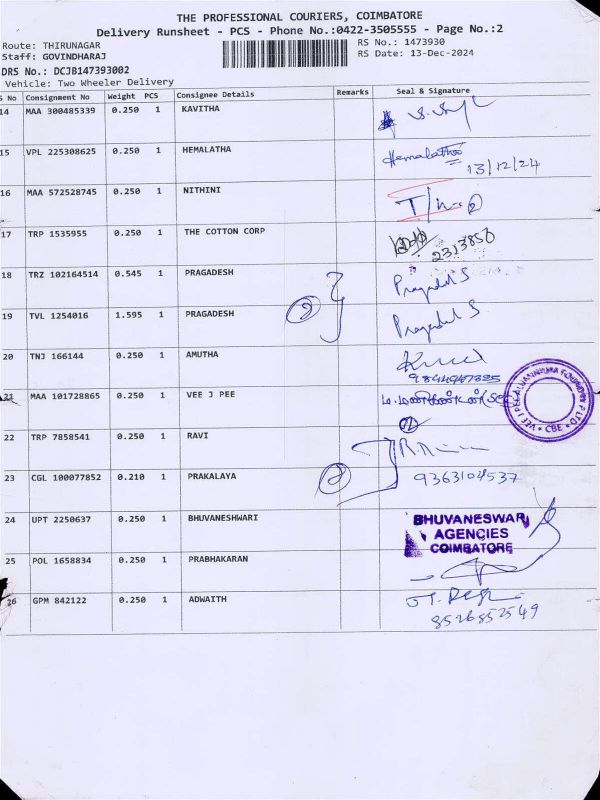 THE PROFESSIONAL COURIERS, COIMBATORE
Delivery Runsheet - PCS - Phone No.:0422-3505555 - Page No.:2
Route: THIRUNAGAR RS No.: 1473930
Staff: GOVINDHARAJ RS Date: 13-Dec-2024
DRS No.: DCJB147393002
Vehicle: Two Wheeler Delivery
S No Consignment No Weight PCS Consignee Details Remarks Seal & Signature
14 MAA 300485339 0.250 1 KAVITHA
15 VPL 225308625 0.250 1 HEMALATHA Hemalatha
13/12/24
16 MAA 572528745 0.250 1 NITHINI
17 TRP 1535955 0.250 1 THE COTTON CORP
2313850
18 TRZ 102164514 0.545 1 PRAGADESH Pragadesh S
19 TVL 1254016 1.595 1 PRAGADESH 2 Pragadesh S
20 TNJ 166144 0.250 1 AMUTHA
21 MAA 101728865 0.250 1 VEE J PEE
CBE
22 TRP 7858541 0.250 1 RAVI
23 CGL 100077852 0.210 1 PRAKALAYA 2 9363104537
24 UPT 2250637 0.250 1 BHUVANESHWARI BHUVANESWARI
AGENCIES
COIMBATORE
25 POL 1658834 0.250 1 PRABHAKARAN
26 GPM 842122 0.250 1 ADWAITH
8526852549